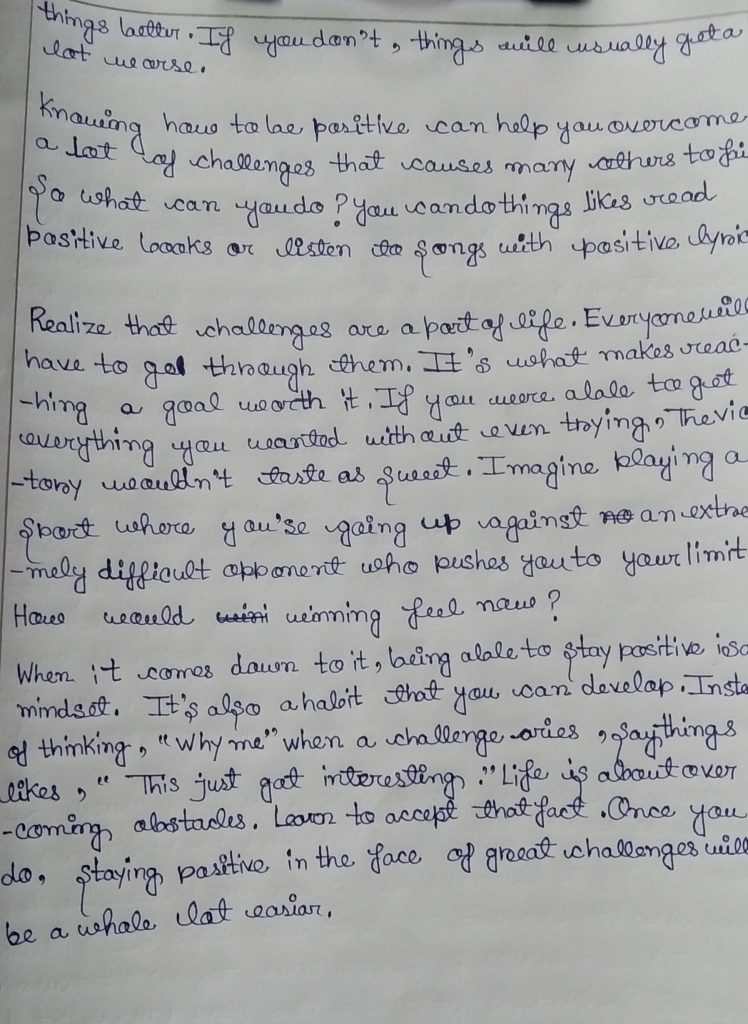 things better. If you don't, things will usually get a
lot worse.
Knowing how to be positive can help you overcome
a lot of challenges that causes many others to fai
So what can you do? You can do things likes read
positive books or listen to songs with positive lyric
Realize that challenges are a part of life. Everyone will
have to get through them. It's what makes reac-
-hing a goal worth it. If you were able to get
everything you wanted without even trying, The vic
-tory wouldn't taste as sweet. Imagine playing a
sport where you'se going up against no an extre
-mely difficult opponent who pushes you to your limit
How would wini winning feel now?
When it comes down to it, being able to stay positive is a
mindset. It's also a habit that you can develop. Inste
of thinking, "Why me" when a challenge aries, say things
likes, "This just got interesting." Life is about over
-coming obstacles. Learn to accept that fact. Once you
do, staying positive in the face of great challenges will
be a whole lot easiar.